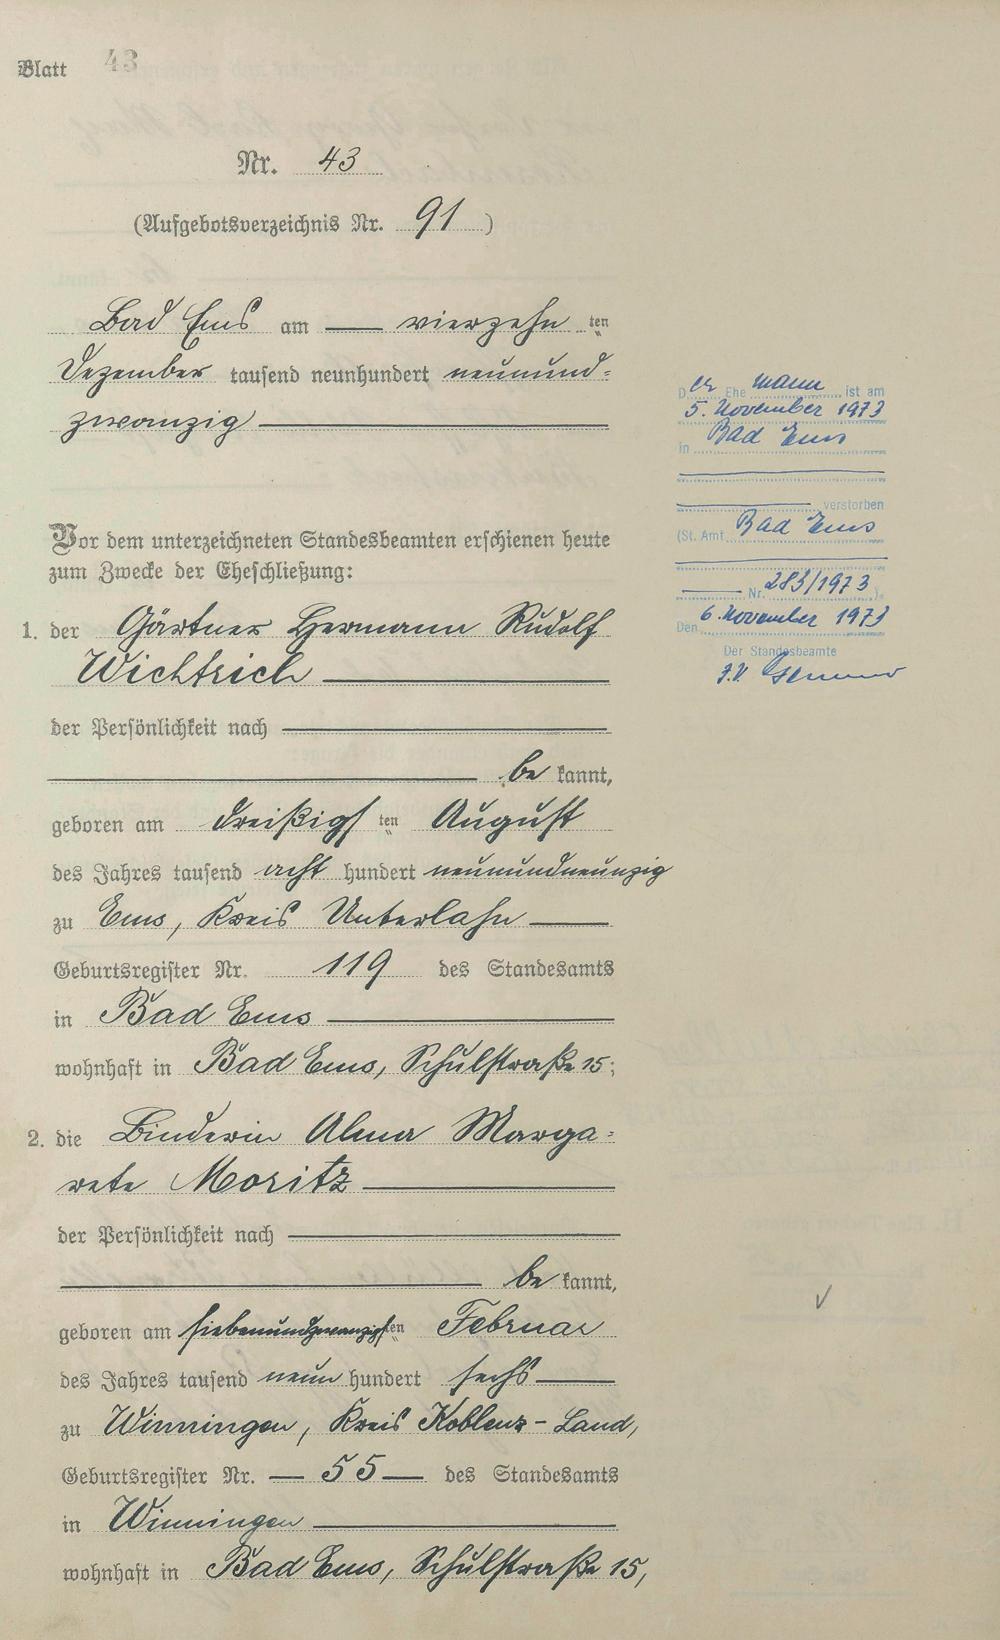 Blatt 43
Nr. 43
(Aufgebotsverzeichnis Nr. 91)
Bad Ems am vierzehn ten
Dezember tausend neunhundert neunund-
zwanzig
Vor dem unterzeichneten Standesbeamten erschienen heute
zum Zwecke der Eheschließung:
1. der Gärtner Hermann Rudolf
Wichtrich
der Persönlichkeit nach
be kannt,
geboren am dreißigs ten August
des Jahres tausend acht hundert neunundneunzig
zu Ems, Kreis Unterlahn
Geburtsregister Nr. 119 des Standesamts
in Bad Ems
wohnhaft in Bad Ems, Schulstraße 15;
2. die Binderin Alma Marga-
rete Moritz
der Persönlichkeit nach
be kannt,
geboren am siebenundzwanzigs ten Februar
des Jahres tausend neun hundert sechs
zu Winningen, Kreis Koblenz-Land,
Geburtsregister Nr. 55 des Standesamts
in Winningen
wohnhaft in Bad Ems, Schulstraße 15,
Der Ehemann ist am
5. November 1973
in Bad Ems
verstorben
(St. Amt Bad Ems
Nr. 283/1973).
Den 6. November 1973
Der Standesbeamte
J.V.